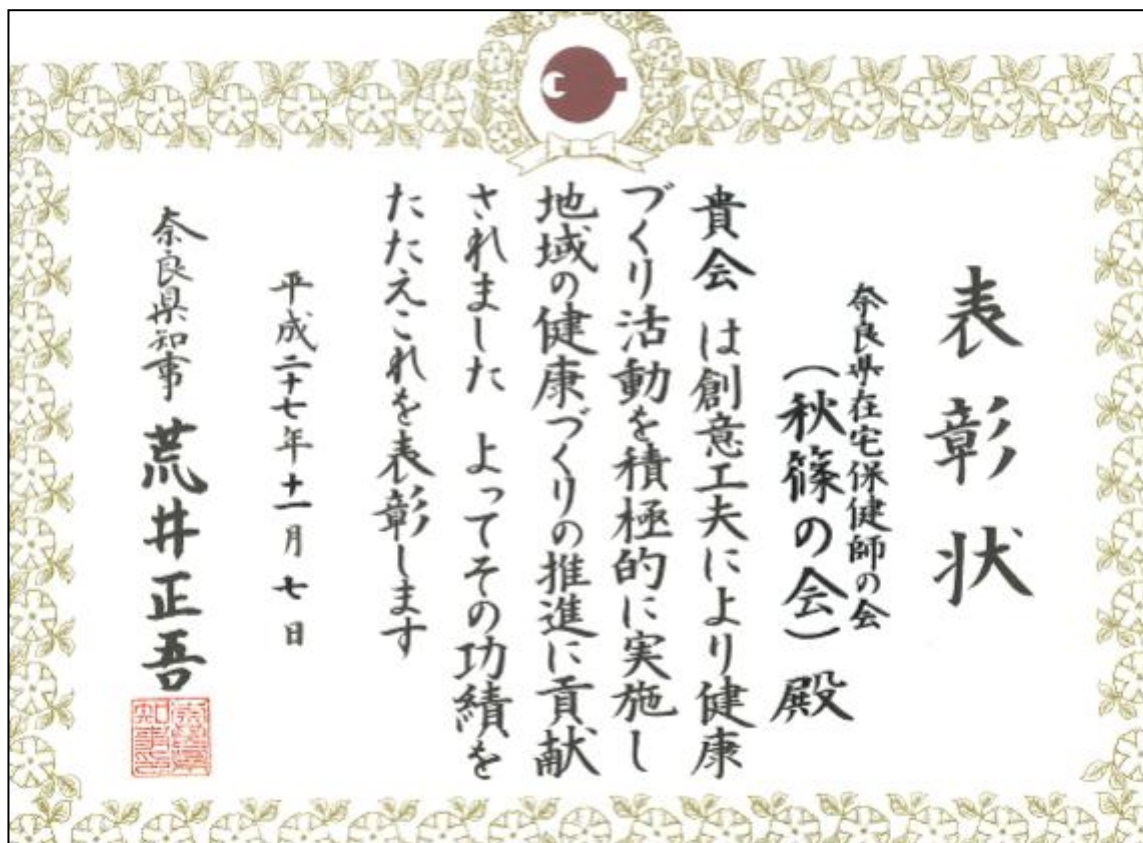 表彰状
奈良県在宅保健師の会
（秋篠の会）殿
貴会 は創意工夫により健康
づくり活動を積極的に実施し
地域の健康づくりの推進に貢献
されました よってその功績を
たたえこれを表彰します
平成二十七年十一月七日
奈良県知事 荒井正吾